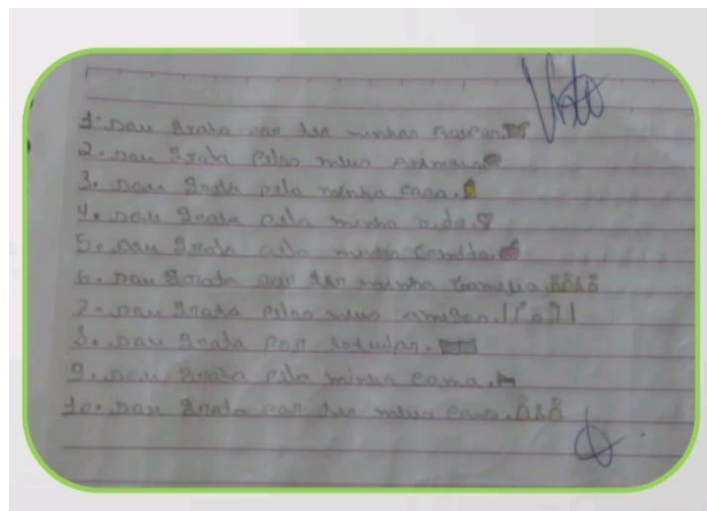 Visto
1. sou grata por ter minhas
2. sou grata pelos meus animais
3. sou grata pela minha casa.
4. sou grata pela minha vida
5. sou grata pela minha comida
6. sou grata por ter minha família
7. sou grata pelos meus amigos.
8. sou grata por estudar.
9. sou grata pela minha cama.
10. sou grata por ter meus